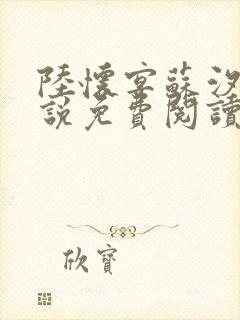 陸懷宴蘇汐
說免費閱讀
欣寶